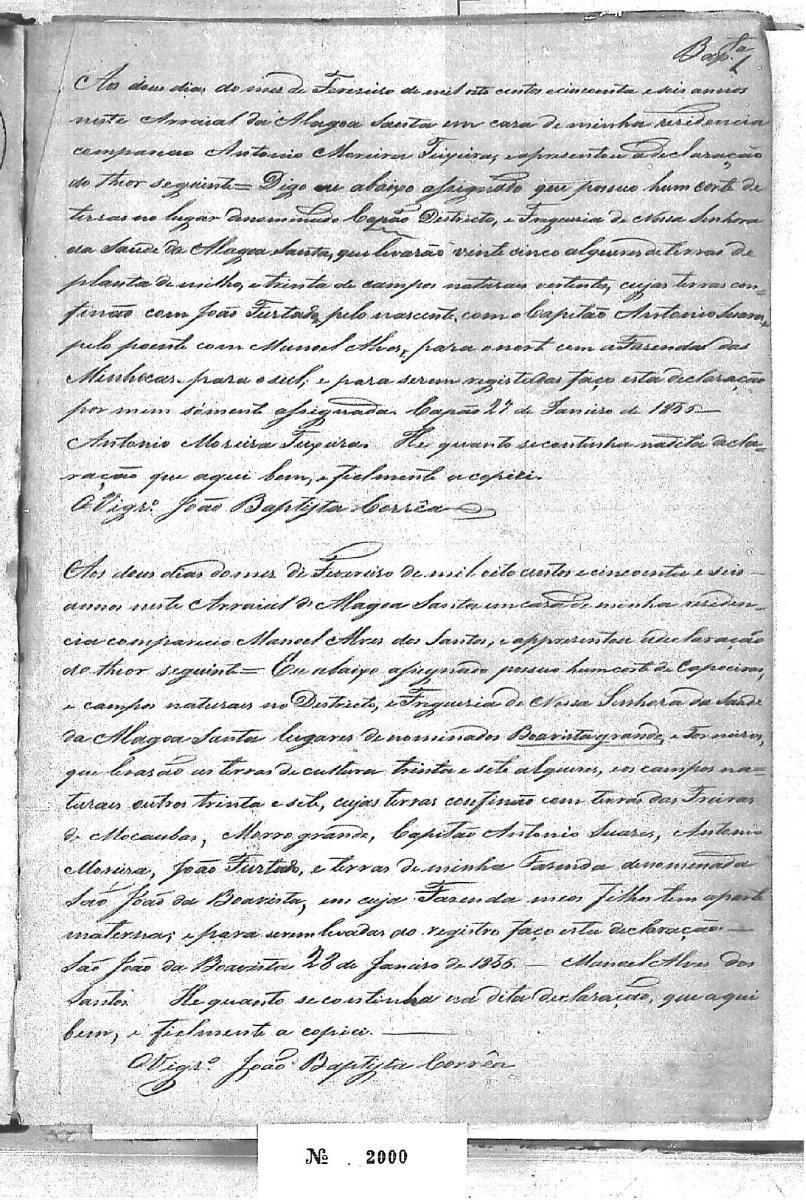 Bap.ta
1
Aos dous dias do mez de Fevereiro de mil oito centos e cincoenta e seis annos
neste Arraial da Alagoa Santa em casa de minha residencia
compareceo Antonio Moreira Teixeira, e apresentou a declaração
do theor seguinte = Digo eu abaixo assignado que possuo hum corte de
terras no lugar denominado Capão Districto, e Freguezia de Nossa Senhora
da Saude da Alagoa Santa, que levarão vinte cinco alqueires de terras de
planta de milho, e trinta de campos naturais vertentes, cujas terras con-
finão com João Furtado, pelo nascente, com o Capitão Antonio Suares,
pelo poente com Manoel Alves, para o nort com a Fasenda das
Minhocas para o sul; e para serem registadas faço esta declaração
por mim sómente assignada. Capão 27 de Janeiro de 1856 —
Antonio Moreira Teixeira. He quanto se continha na dita decla-
ração que aqui bem, e fielmente a copiei.
O Vigr.o João Baptista Corrêa
Aos dous dias do mez de Fevereiro de mil oito centos e cincoenta e seis
annos neste Arraial d'Alagoa Santa em casa de minha residen-
cia compareceo Manoel Alves dos Santos, e appresentou a declaração
do theor seguinte = Eu abaixo assignado possuo hum corte de Capoeiras,
e campos naturais no Districto, e Freguezia de Nossa Senhora da Saude
da Alagoa Santa lugares denominados Boavista grande, e Forneiros,
que levarão as terras de cultura trinta e sete alqueires, e os campos na-
turais outros trinta e sete, cujas terras confinão com terras das Freiras
de Macaubas, Morro grande, Capitão Antonio Suares, Antonio
Moreira, João Furtado, e terras de minha Fazenda denominada
São João da Boavista, em cuja Fazenda meos filhos tem a parte
materna; e para serem levadas ao registro faço esta declaração —
São João da Boavista 28 de Janeiro de 1856. — Manoel Alves dos
Santos. He quanto se continha na dita declaração, que aqui
bem, e fielmente a copiei. —
O Vigr.o João Baptista Corrêa
No 2000